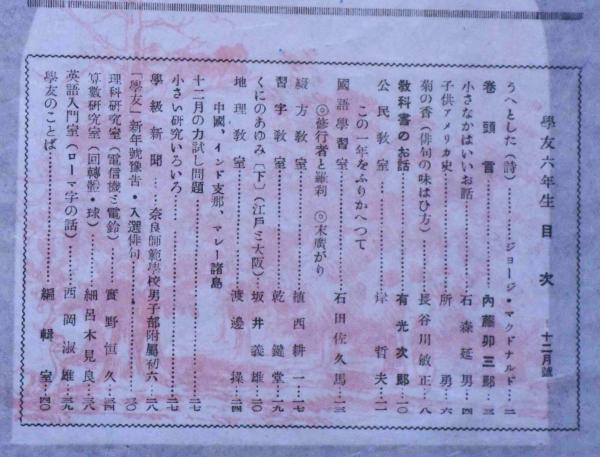 學友六年生 目次 十二月號
うへとした(詩)……ジョージ・マクドナルド…二
卷頭言……内藤卯三郎…三
小さなかはいいお話……石森延男…四
子供アメリカ史……所勇…六
菊の香(俳句の味はひ方)……長谷川敏正…八
教科書のお話……有光次郎…一〇
公民教室……岸哲夫…一一
この一年をふりかへつて
國語學習室……石田佐久馬…一三
◎修行者と羅刹 ◎末廣がり
綴方教室……植西耕一…一七
習字教室……乾鍵堂…一九
くにのあゆみ〔下〕(江戸と大阪)…坂井義雄…二〇
地理教室……渡邊操…二四
中國、インド支那、マレー諸島
十二月の力試し問題……二七
小さい研究いろいろ……二七
學級新聞……奈良師範學校男子部附屬初六…二八
「學友」新年號豫告・入選俳句……三〇
理科研究室(電信機と電鈴)……實野恒久…三四
算數研究室(回轉體・球)……細呂木見良…三八
英語入門室(ローマ字の話)……西岡淑雄…三九
學友のことば……編輯室…四〇